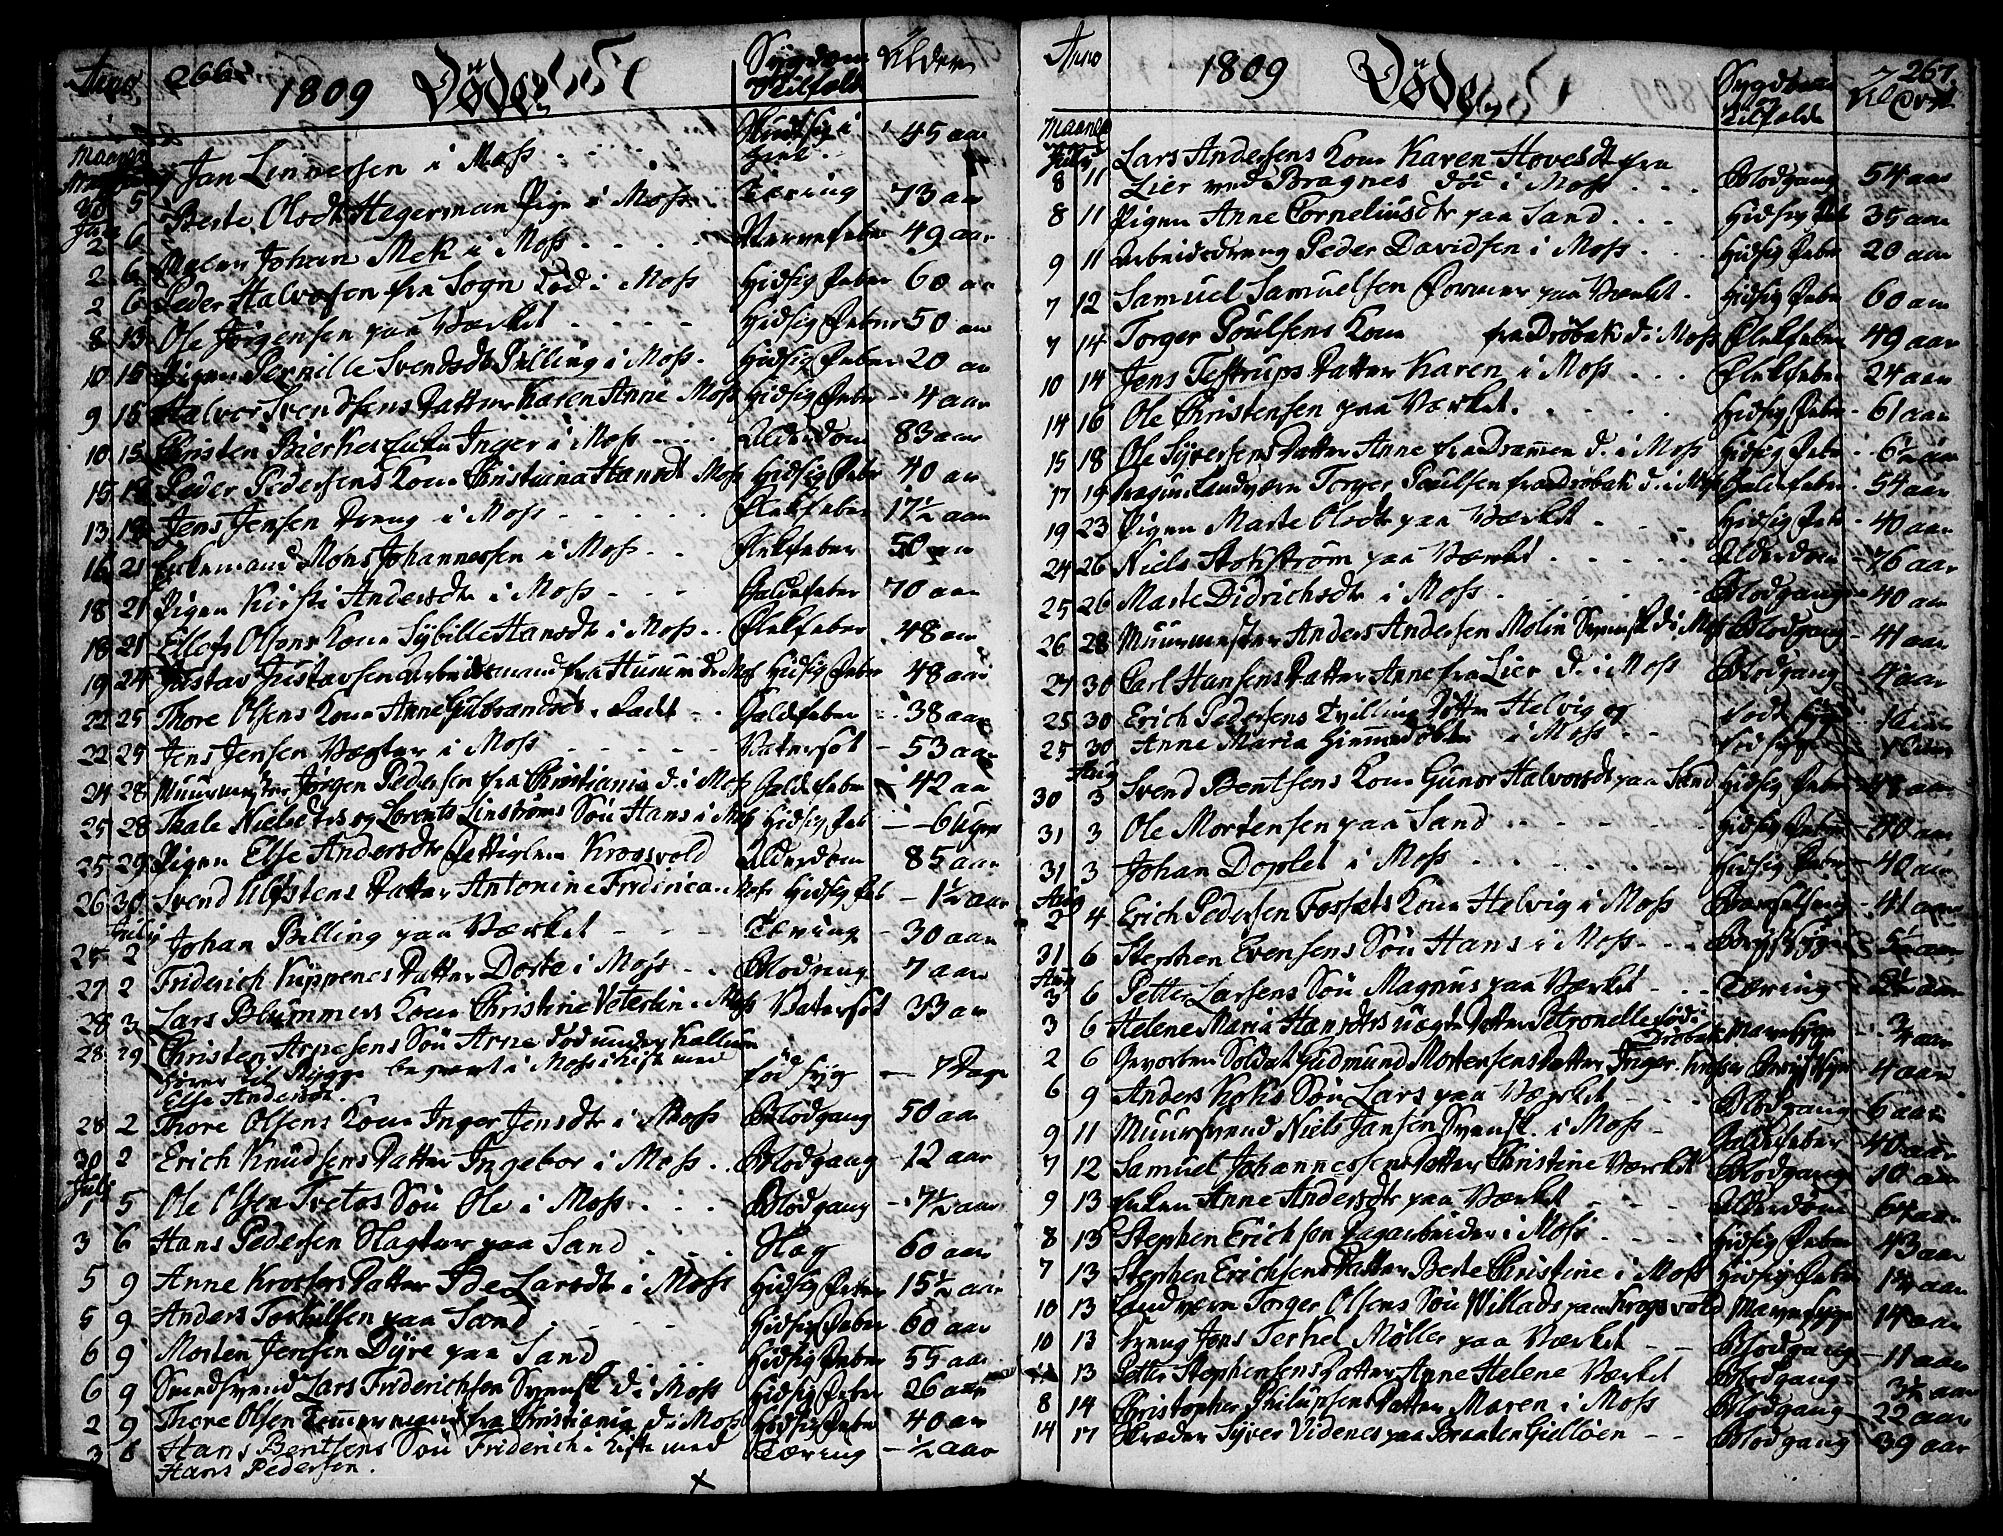 Anno 266 1809 Døde Sygdom Tilfald Alder
Jan Linnersen i Moss 45 aar
5 Berte Olsdtr Hegerman Pige i Moss Tæring 73 aar
2 6 Johan Mek i Moss Nervefeber 49 aar
2 6 Peder Halvorsen fra Sogn Død i Moss Hidsig Feber 60 aar
8 13 Ole Jørgensen paa Værket Hidsig Feber 50 aar
10 15 Pigen Pernille Svendsdtr Pilling i Moss Hidsig Feber 20 aar
9 15 Halvor Svendsens Datter Karen Anne Moss Hidsig Feber 4 aar
10 15 Christen Bierkes Enke Inger i Moss Alderdom 83 aar
15 18 Peder Pedersens Kone Christiana Hansdt Moss Hidsig Feber 40 aar
13 18 Jens Jensen Dreng i Moss Flekfeber 17½ aar
16 21 Enkemand Mons Johannessen i Moss Flekfeber 50 aar
18 21 Pigen Kirsti Andersdtr i Moss Galdefeber 70 aar
18 21 Ellef Olsens Kone Sybille Hansdtr i Moss Flekfeber 48 aar
19 24 Gustav Gustavsen Arbeidsmand fra Hurum d. Moss Hidsig Feber 48 aar
22 25 Thore Olsens Kone Anne Gulbrandsdtr Galdefeber 38 aar
22 25 Jens Jensen Vægter i Moss Vatersot 53 aar
24 28 Muurmester Jørgen Pedersen fra Christiania d. i Moss Galdefeber 42 aar
25 28 Male Nielsdtrs og Lorents Linstrøms Søn Hans i Moss Hidsig Feb 6 Uger
25 29 Pigen Else Andersdtr Fattiglem Krosvold Alderdom 85 aar
26 30 Svend Ulfstens Datter Antonine Fridrica Moss Hidsig Feb 1½ aar
July
25 2 Johan Billing paa Værket Tæring 30 aar
27 2 Friderich Kuppenes Datter Dorte i Moss Blodgang 7 aar
28 3 Lars Blummers Kone Christine Veterlin i Moss Vatersot 33 aar
28 29 Christen Arnesens Søn Arne Død under Kallum
hører til Rygge begravet i Moss i Kiste med fød syg 7 Dage
Else Andersdt.
28 2 Thore Olsens Kone Inger Jensdtr i Moss Blodgang 50 aar
30 2 Erich Knudsens Datter Ingebor i Moss Blodgang 12 aar
July
1 5 Ole Olsen Tretos Søn Ole i Moss Blodgang 7½ aar
3 6 Hans Pedersen Slagter paa Sand Slag 60 aar
5 9 Anne Krosses Datter Ide Larsdtr i Moss Hidsig Feber 15½ aar
5 9 Anders Torkilsen paa Sand Hidsig Feber 60 aar
6 9 Morten Jensen Dyre paa Sand Hidsig Feber 55 aar
6 9 Smedsvend Lars Friderichsen Svensk d. i Moss Hidsig Feber 26 aar
2 9 Thore Olsen Tømmermand fra Christiania d. i Moss Hidsig Feber 40 aar
3 6 Hans Bentsens Søn Friderich i Kiste med Tæring ½ aar
Hans Pedersen.
Anno 1809 Døde Sygdom og Tilfalde Alder 267
Maaned
July
Lars Andersens Kone Karen Hovesdt fra
8 11 Lier ved Bragnes død i Moss Blodgang 54 aar
8 11 Pigen Anne Corneliusdtr paa Sand Hidsig Feb 35 aar
9 11 Arbeidsdreng Peder Davidsen i Moss Hidsig Feber 20 aar
7 12 Samuel Samuelsen Former paa Værket Hidsig Feber 60 aar
7 14 Torger Poulsens Kone fra Drøbak d. i Moss Flekfeber 49 aar
10 14 Jens Testrups Datter Karen i Moss Flekfeber 24 aar
14 16 Ole Christensen paa Værket Hidsig Feber 61 aar
15 18 Ole Syversens Datter Anne fra Dramen d. i Moss Hidsig Feber 6½ aar
17 19 Landværn Torger Poulsen fra Drøbak d. i Moss Galdefeber 54 aar
19 23 Pigen Marte Olsdtr paa Værket Hidsig Feb 40 aar
24 26 Niels Stokstrøm paa Værket Alderdom 76 aar
25 26 Marte Didrichsdtr i Moss Blodgang 40 aar
26 28 Muurmester Anders Andersen Molin Svensk d. i Moss Blodgang 41 aar
27 30 Carl Hansens Datter Anne fra Lier d. i Moss Blodgang 4 aar
25 30 Erich Pedersens Tvilling Døttre Helvig og født syg
25 30 Anne Maria Hiemmedøbte i Moss
Aug
30 3 Svend Bentsens Kone Gunor Halvorsdt paa Sand Hidsig Feber 48 aar
31 3 Ole Mortensen paa Sand Hidsig Feber 40 aar
31 3 Johan Doplet i Moss Hidsig Feber 40 aar
Aug
2 4 Erich Pedersen Fossets Kone Helvig i Moss Barselseng 41 aar
31 6 Stephen Evensens Søn Hans i Moss Brystsyge 5½ aar
Aug
3 6 Petter Larsens Søn Magnus paa Værket Tæring
3 6 Helene Maria Hansdtrs uægte Datter Petronelle fød i
Drøbak Mavesyge ¾ aar
2 6 Gevorben Soldat Gudmund Mortensens Datter Inger Brystsyge 4 aar
6 9 Anders Koks Søn Lars paa Værket Blodgang 6 aar
9 11 Muursvend Niels Jansen Svensk i Moss Galdefeber 40 aar
7 12 Samuel Johannessens Datter Christine Værket Blodgang 10 aar
9 13 Enken Anne Andersdtr paa Værket Alderdom 64 aar
8 13 Stephen Erichsen Dagarbeider i Moss Hidsig Feber 43 aar
7 13 Stephen Erichsens Datter Berte Christine i Moss Hidsig Feber 1½ aar
10 13 Landværn Torger Olsens Søn Willads paa Krogsvold Mavesyge 14 aar
10 13 Dreng Jens Terkel Møller paa Værket Blodgang 11 aar
13 Petter Stephensens Datter Anne Helene Værket Blodgang 3½ aar
8 14 Christopher Philupsens Datter Maren i Moss Blodgang 22 aar
14 17 Skræder Syver Videnes paa Braaten Gielløen Blodgang 39 aar